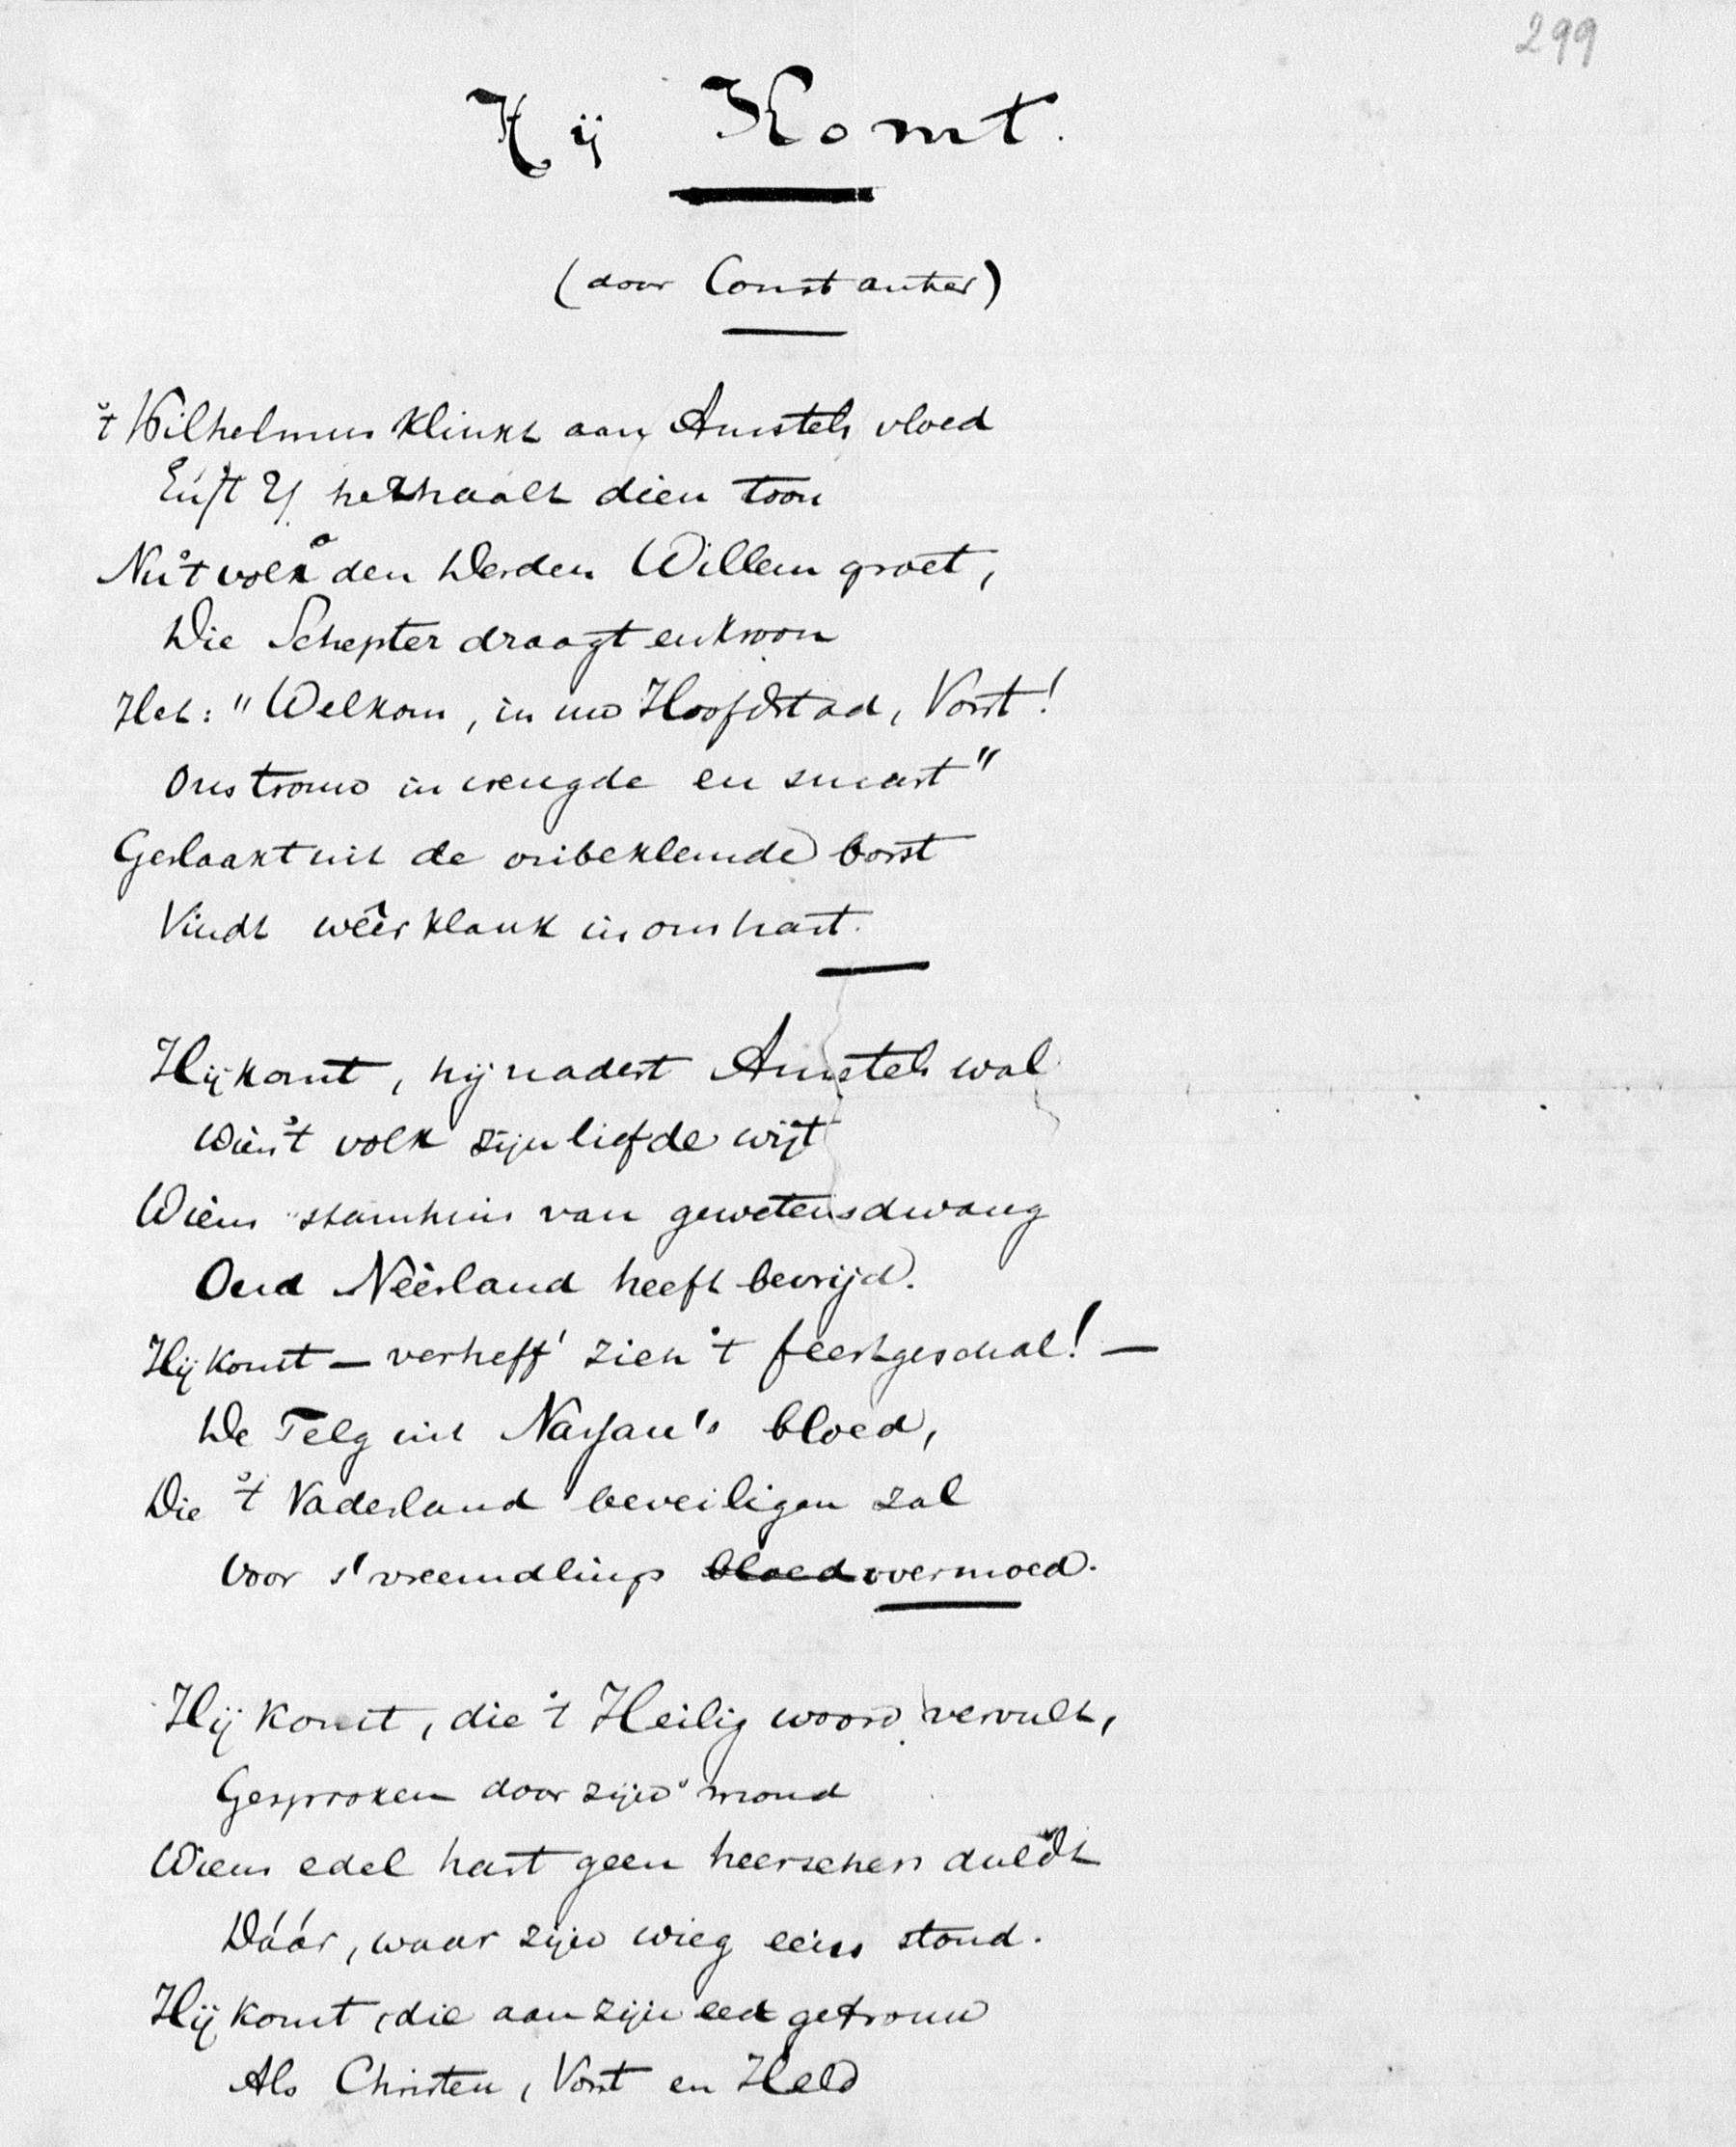 299
Hij Komt.
(door Constanter)
't Wilhelmus klinkt aan Amstels vloed
En 't Y herhaalt dien toon
Nu 't volk den derden Willem groet,
Die Schepter draagt en kroon
Het: "Welkom, in uw Hoofdstad, Vorst!
Ons trouw in vreugde en smart"
Geslaakt uit de onbeklemde borst
Vindt wêerklank in ons hart.
Hij komt, hij nadert Amstels wal
Wien 't volk zijn liefde wijt
Wiens stamhuis van gewetensdwang
Oud Nêerland heeft bevrijd.
Hij komt — verheff' zich 't feestgeschal! —
De Telg uit Nassau's bloed,
Die 't Vaderland beveiligen zal
Voor s' vreemdlings bloed overmoed.
Hij komt, die 't Heilig woord vervult,
Gesproken door zijn mond
Wiens edel hart geen heerschen duldt
Dáár, waar zijn wieg eens stond.
Hij komt, die aan zijn eed getrouw
Als Christen, Vorst en Held